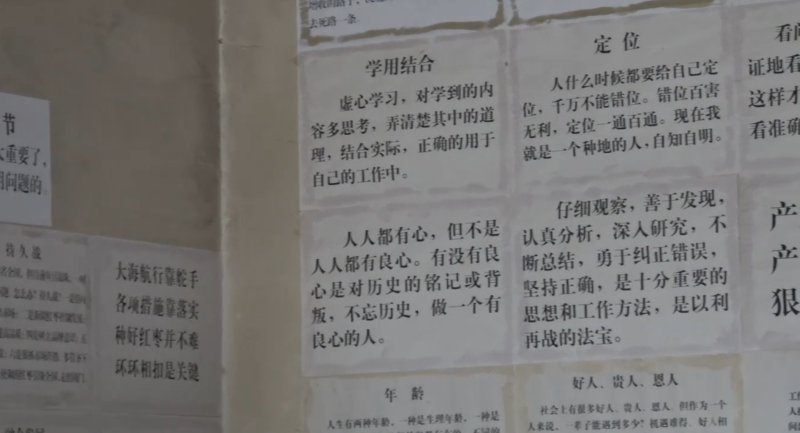 去死路一条
学用结合
虚心学习，对学到的内
容多思考，弄清楚其中的道
理，结合实际，正确的用于
自己的工作中。
定位
人什么时候都要给自己定
位，千万不能错位。错位百害
无利，定位一通百通。现在我
就是一个种地的人，自知自明。
看问
证地看
这样才
看准确
节
重要了，
问题的。
人人都有心，但不是
人人都有良心。有没有良
心是对历史的铭记或背
叛，不忘历史，做一个有
良心的人。
仔细观察，善于发现，
认真分析，深入研究，不
断总结，勇于纠正错误，
坚持正确，是十分重要的
思想和工作方法，是以利
再战的法宝。
产
产
狠
持久战
大海航行靠舵手
各项措施靠落实
种好红枣并不难
环环相扣是关键
年龄
人生有两种年龄，一种是生理年龄，一种是
好人、贵人、恩人
社会上有很多好人、贵人、恩人，但作为一个
人来说，一辈子能遇到多少？机遇难得，好人相